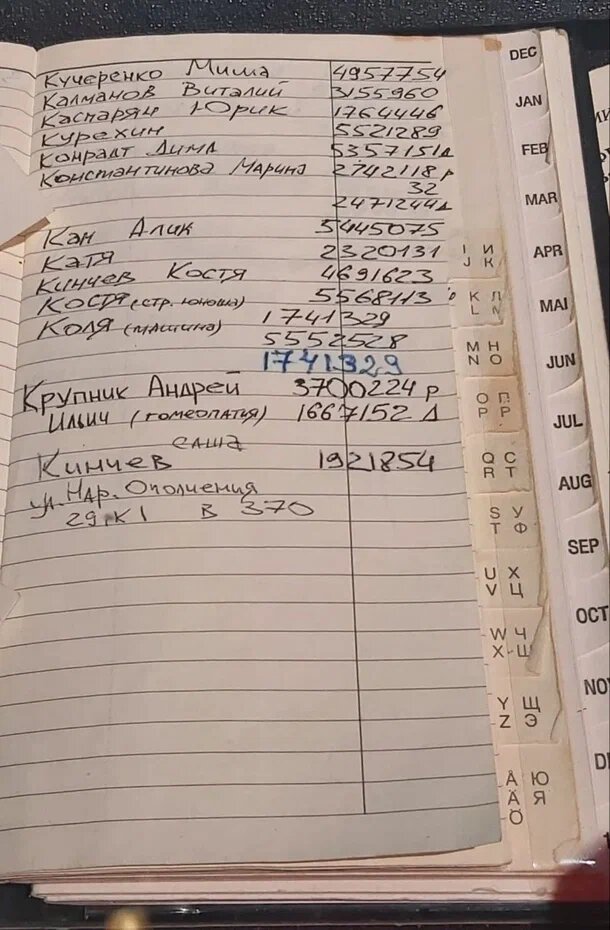 Кучеренко Миша 4957754
Калманов Виталий 3155960
Каспарян Юрик 1764446
Курехин 5521289
Конралт Дима 5357151д
Константинова Марина 2742118р
32
2471244д
Кан Алик 5445075
Катя 2320131
Кинчев Костя 4691623
Костя (стр. юноша) 5568113
Коля (машина) 1741329
5552528
1741329
Крупник Андрей 3700224 р
Ильич (гомеопатия) 1667152 д
саша
Кинчев 1921854
ул. Нар. Ополчения
29 к1 в 370
I И
J К
K Л
L
M Н
N О
O П
P Р
Q С
R Т
S У
T Ф
U Х
V Ц
W Ч
X Ш
Y Щ
Z Э
Å Ю
Ä Я
Ö
DEC
JAN
FEB
MAR
APR
MAI
JUN
JUL
AUG
SEP
OCT
NO